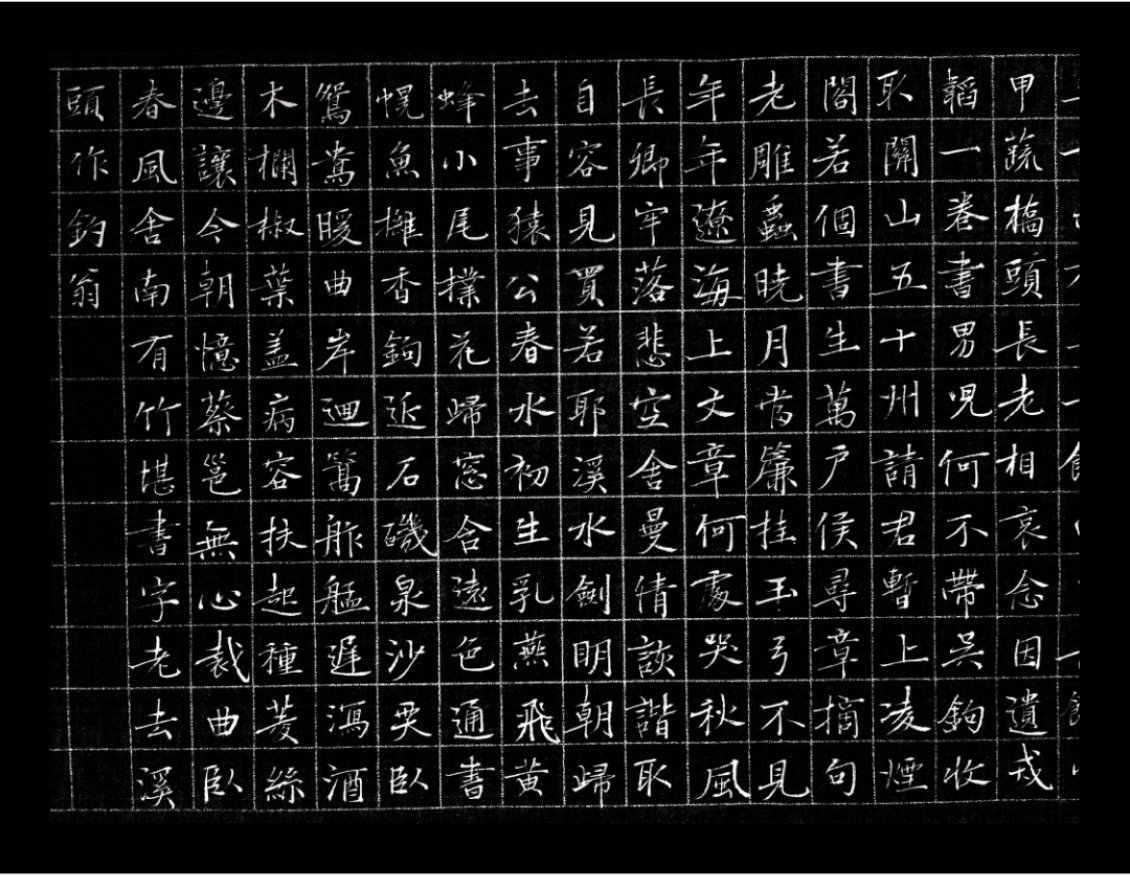 甲蔬橋頭長老相哀念因遺戎
韜一卷書男児何不帶吳鉤收
取關山五十州請君暫上凌煙
閣若個書生萬戶侯尋章摘句
老雕蟲曉月當簾挂玉弓不見
年年遼海上文章何處哭秋風
長卿牢落悲空舍曼倩詼諧取
自容見買若耶溪水劍明朝歸
去事猿公春水初生乳燕飛黃
蜂小尾撲花歸窓含遠色通書
幌魚擁香鉤近石磯泉沙耎臥
鴛鴦暖曲岸迴篙舴艋遲瀉酒
木欄椒葉盖病容扶起種菱絲
邊讓今朝憶蔡邕無心裁曲臥
春風舍南有竹堪書字老去溪
頭作釣翁